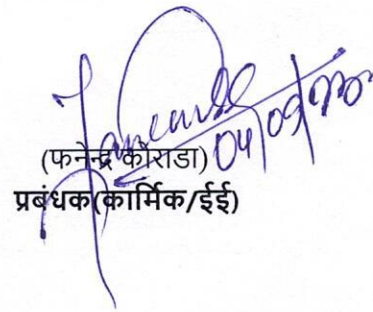 04/09/20
(फनेन्द्र कोराडा)
प्रबंधक(कार्मिक/ईई)